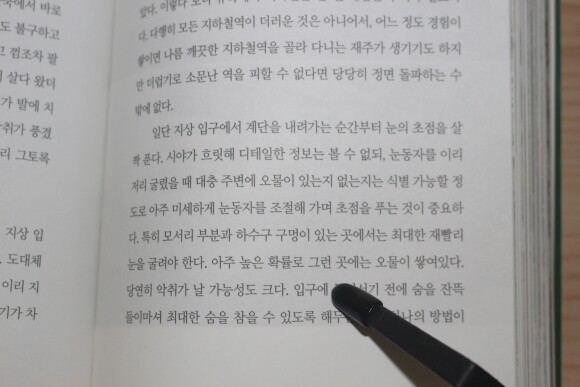 국에서 바로
도 불구하고
고 껌조차 팔
살다 왔더
가 발에 치
악취가 풍겼
리 그토록
지상 입
도대체
이리 지
기가 차
다. 다행히 모든 지하철역이 더러운 것은 아니어서, 어느 정도 경험이
쌓이면 나름 깨끗한 지하철역을 골라 다니는 재주가 생기기도 하지
만 더럽기로 소문난 역을 피할 수 없다면 당당히 정면 돌파하는 수
밖에 없다.
일단 지상 입구에서 계단을 내려가는 순간부터 눈의 초점을 살
짝 푼다. 시야가 흐릿해 디테일한 정보는 볼 수 없되, 눈동자를 이리
저리 굴렸을 때 대충 주변에 오물이 있는지 없는지는 식별 가능할 정
도로 아주 미세하게 눈동자를 조절해 가며 초점을 푸는 것이 중요하
다. 특히 모서리 부분과 하수구 구멍이 있는 곳에서는 최대한 재빨리
눈을 굴려야 한다. 아주 높은 확률로 그런 곳에는 오물이 쌓여있다.
당연히 악취가 날 가능성도 크다. 입구에 전에 숨을 잔뜩
들이마셔 최대한 숨을 참을 수 있도록 방법이